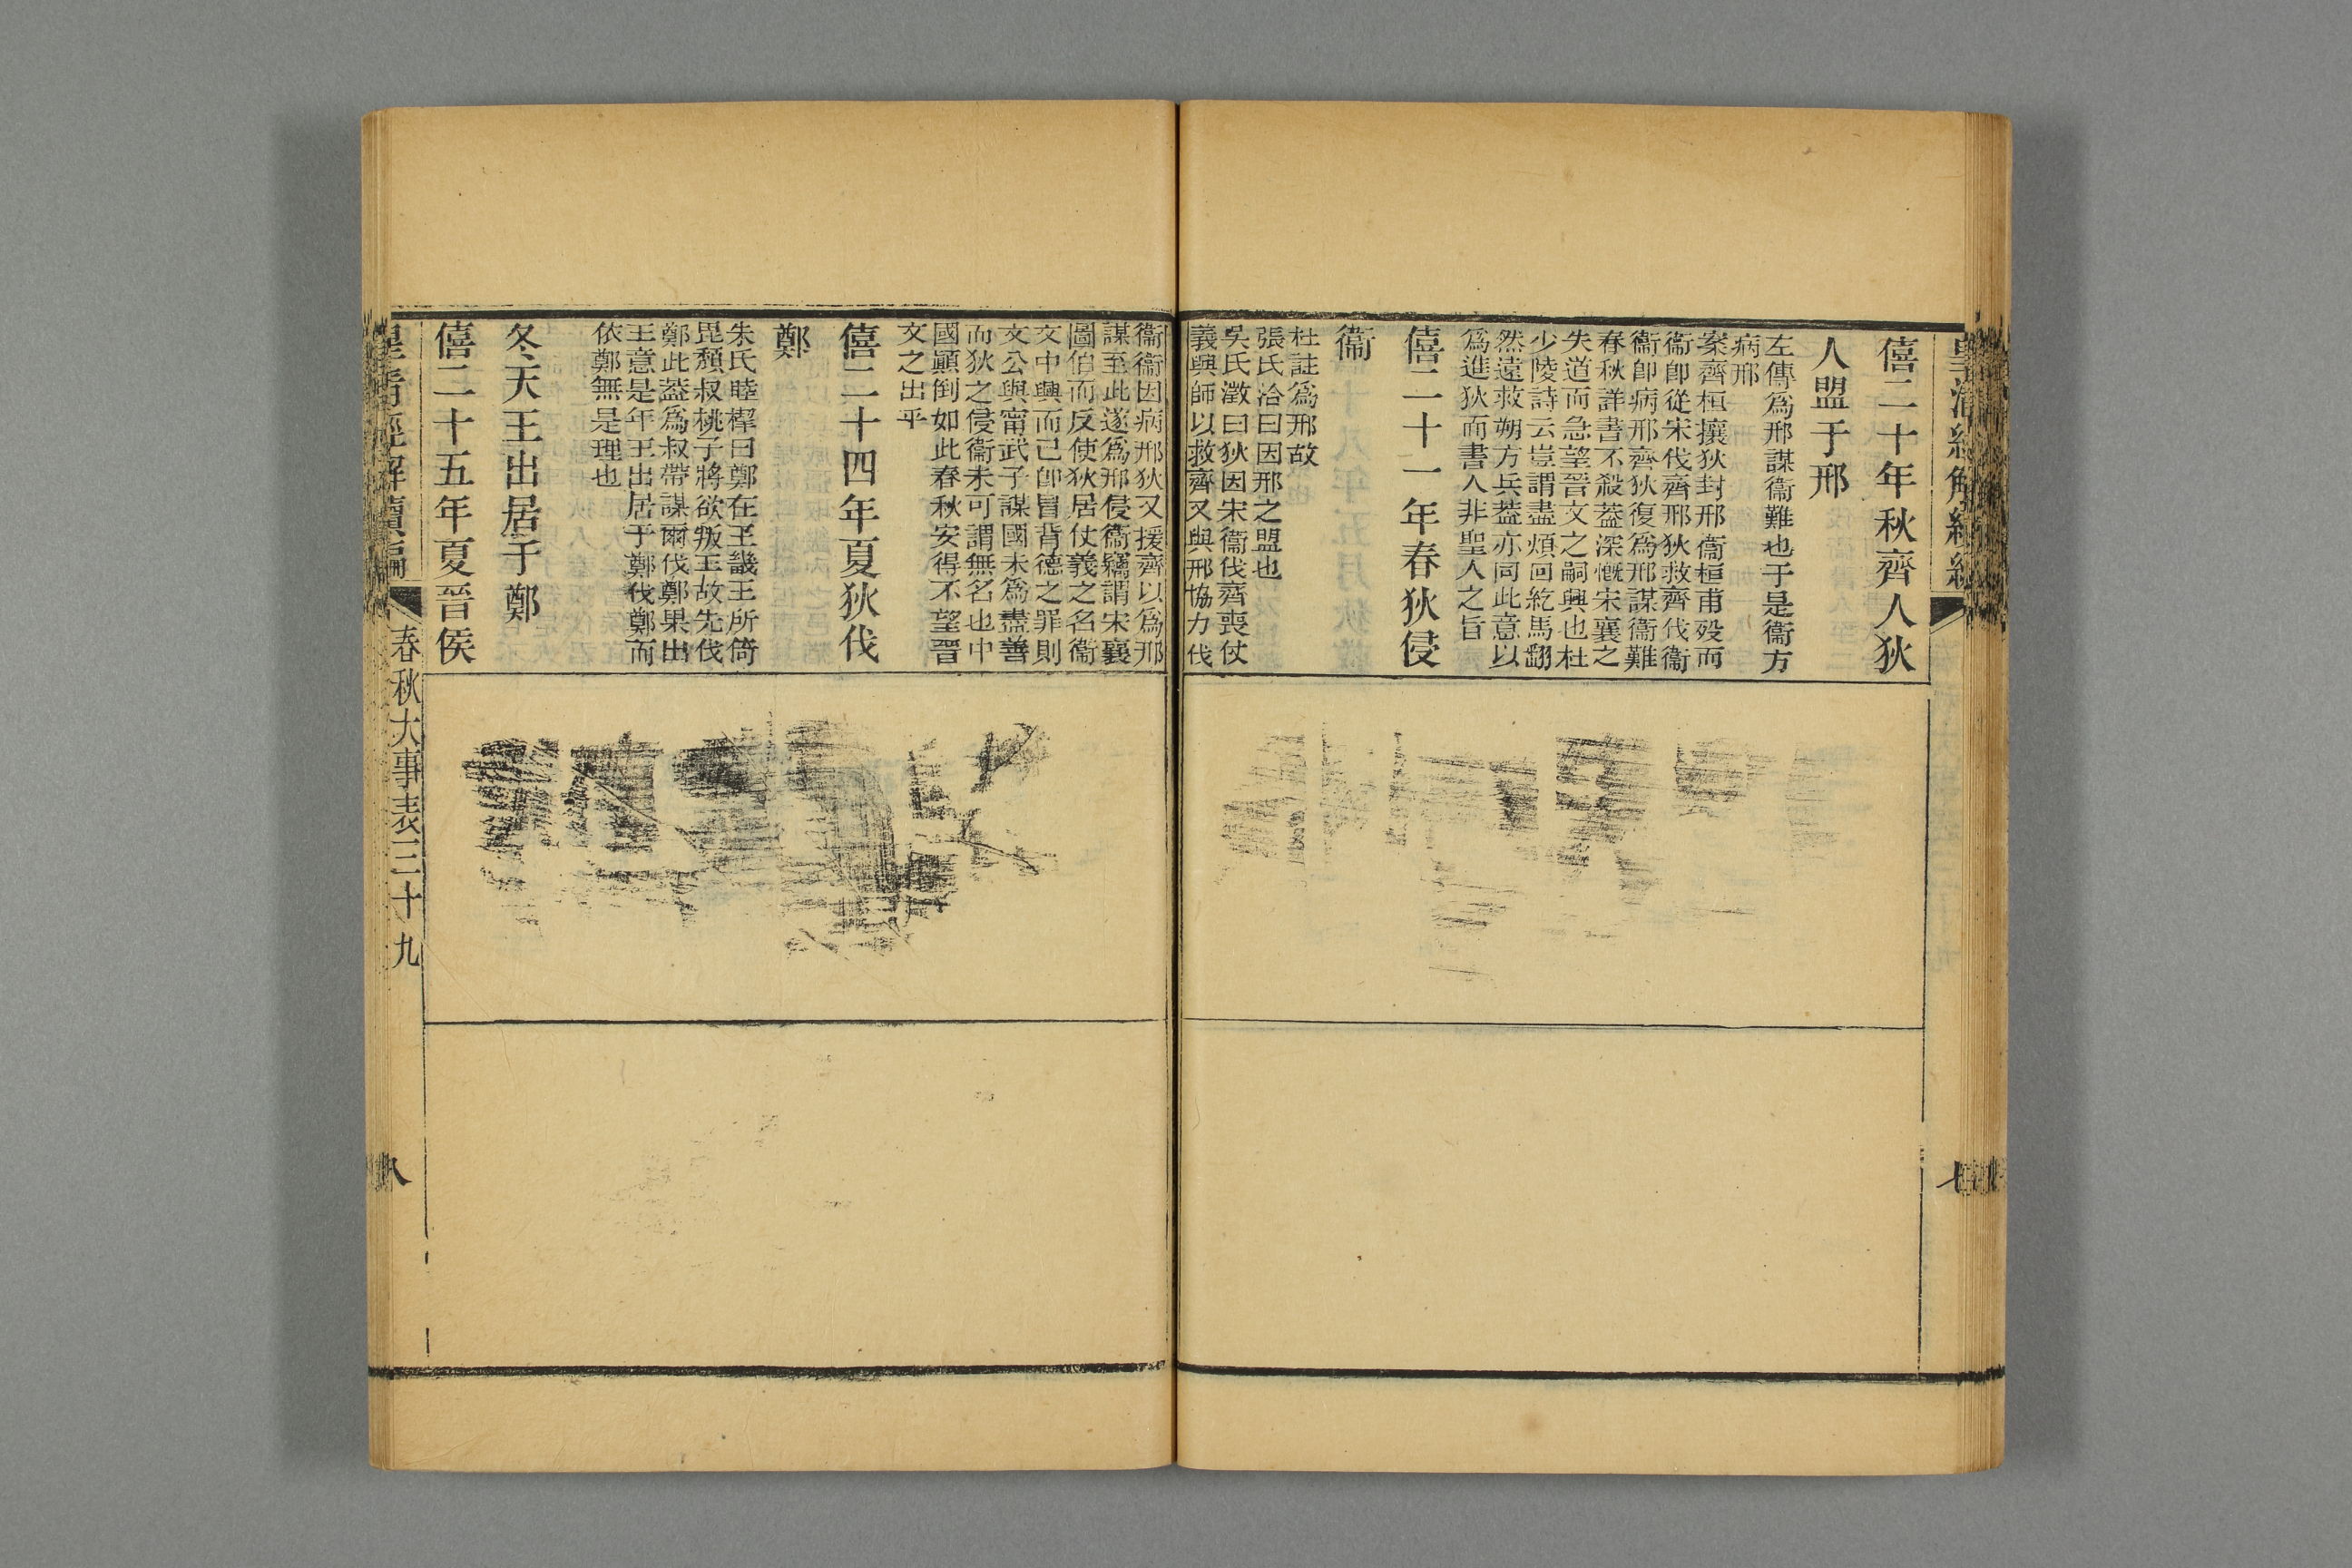 僖二十年秋齊人狄
人盟于邢
左傳爲邢謀衞難也于是衞方
病邢
案齊桓攘狄封邢衞桓甫歿而
衞卽從宋伐齊邢狄救齊伐衞
衞卽病邢齊狄復爲邢謀衞難
春秋詳書不殺葢深慨宋襄之
失道而急望晉文之嗣興也杜
少陵詩云豈謂盡煩回紇馬翻
然遠救朔方兵葢亦同此意以
爲進狄而書人非聖人之旨
僖二十一年春狄侵
衞
杜註爲邢故
張氏洽曰因邢之盟也
吳氏澂曰狄因宋衞伐齊喪仗
義興師以救齊又與邢協力伐
衞衞因病邢狄又援齊以爲邢
謀至此遂爲邢侵衞竊謂宋襄
圖伯而反使狄居仗義之名衞
文中興而己卽冒背德之罪則
文公與甯武子謀國未爲盡善
而狄之侵衞未可謂無名也中
國顚倒如此春秋安得不望晉
文之出乎
僖二十四年夏狄伐
鄭
朱氏睦㮮曰鄭在王畿王所倚
毘頹叔桃子將欲叛王故先伐
鄭此葢爲叔帶謀爾伐鄭果出
王意是年王出居于鄭伐鄭而
依鄭無是理也
冬天王出居于鄭
僖二十五年夏晉侯
皇清經解續編
春秋大事表三十九
八